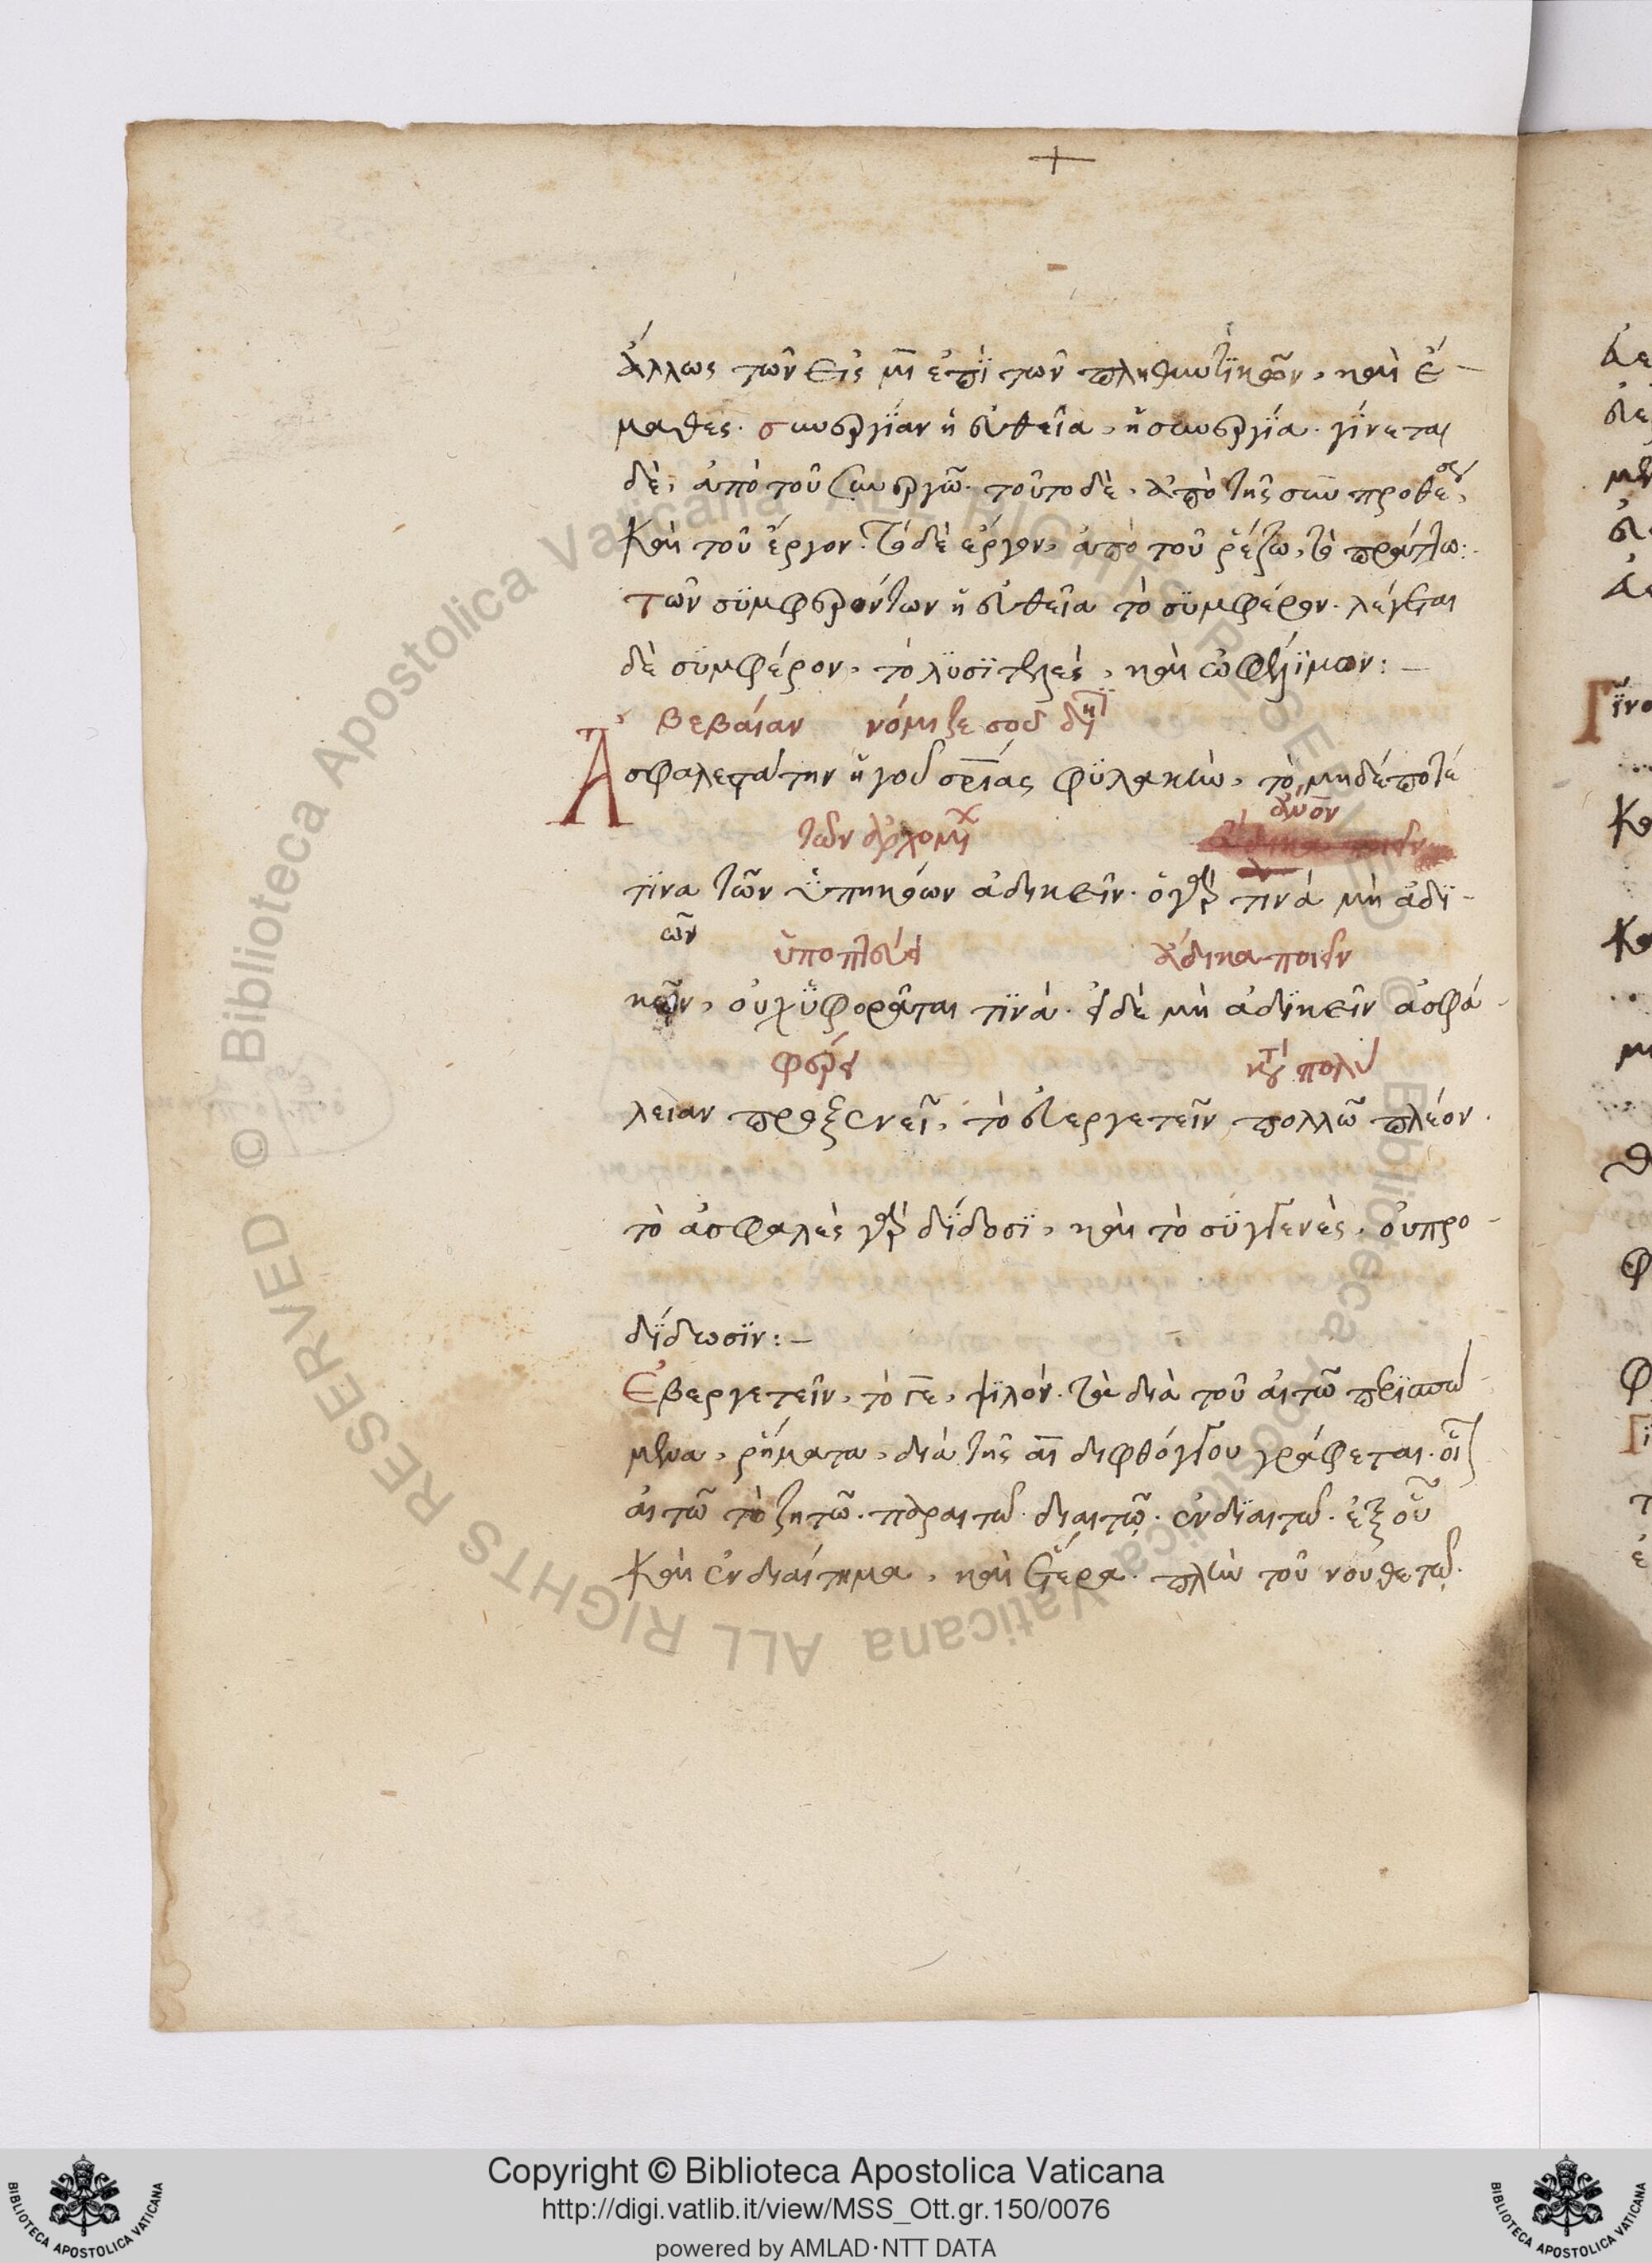 +
ἄλλως τῶν εἰς μι ἐπῒ τῶν πληθυντϊκῶν, καὶ ἔ-
μαθες. συνεργΐαν ἡ εὐθεῖα, ἡ συνεργΐα. γΐνεται
δὲ, ἀπὸ τοῦ συνεργῶ. τοῦτο δὲ, ἀπὸ τῆς σὺν προθέσ,
καὶ τοῦ ἔργον. τὸ δὲ ἔργον, ἀπὸ τοῦ ῥέζω, τὸ πράττω:
τῶν σϋμφερόντων ἡ εὐθεῖα τὸ σϋμφέρον. λέγεται
δὲ σϋμφέρον, τὸ λϋσϊτελὲς, καὶ ὠφελΐμον:-
βεβαίαν νόμιζε σοῦ
Ἀσφαλεστάτην ἡγοῦ σρίας φϋλακὴν, τὸ μηδέποτέ
τῶν ἀρχομ ἄνον
τϊνα τῶν ὑπηκόων ἀδικεῖν. ὁ γάρ τινά μὴ ἀδϊ-
ῶν ὑποπτεύει ἄδικα ποιεῖν
κῶν, οὐχ ὑφορᾶται τϊνὰ. εἰ δὲ μὴ ἀδϊκεῖν ἀσφά-
φέρει κτ πολὺ
λειαν προξενεῖ, τὸ εὐεργετεῖν πολλῶ πλέον.
τὸ ἀσφαλὲς γάρ δΐδοσϊ, καὶ τὸ σϋγγενὲς, οὐ προ-
δΐδωσϊν:-
Εβεργετεῖν, τὸ γε, ψϊλόν. τὰ διὰ τοῦ αιτῶ περϊσπώ-
μενα, ῥήματα, διὰ τῆς αι διφθόγγου γράφεται. οἷ
αἰτῶ τὸ ζητῶ. παραιτῶ. διαιτῶ. ἐνδϊαιτῶ. ἐξ οὗ
καὶ ἐνδιαίτημα, καὶ ἕτερα. πλὴν τοῦ νουθετῶ.
Copyright © Biblioteca Apostolica Vaticana
http://digi.vatlib.it/view/MSS_Ott.gr.150/0076
powered by AMLAD·NTT DATA
BIBLIOTECA APOSTOLICA VATICANA
BIBLIOTECA APOSTOLICA VATICANA
© Biblioteca Apostolica Vaticana ALL RIGHTS RESERVED
© Biblioteca Apostolica Vaticana ALL RIGHTS RESERVED